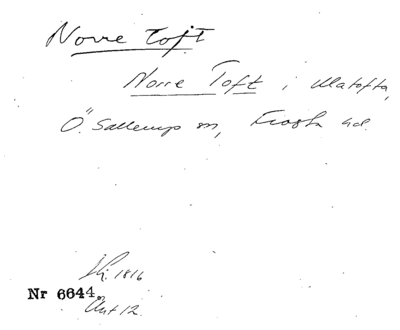 Norre Toft
Norre Toft i Matofta,
Ö. Sallerup sn, Frosta hd.
1816
Nr 6644.
Akt 12.